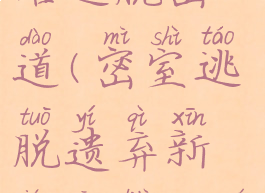 dào mì shì táo
道(密室逃
tuō yí qì xīn
脱遗弃新